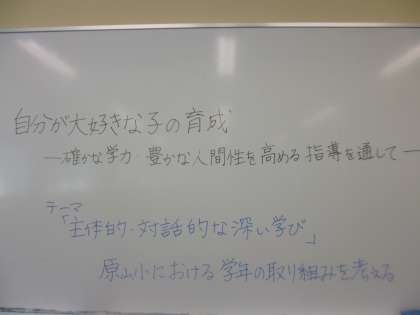 自分が大好きな子の育成
―確かな学力 豊かな人間性を高める指導を通して―
テーマ
「主体的・対話的な深い学び」
原山小における学年の取り組みを考える